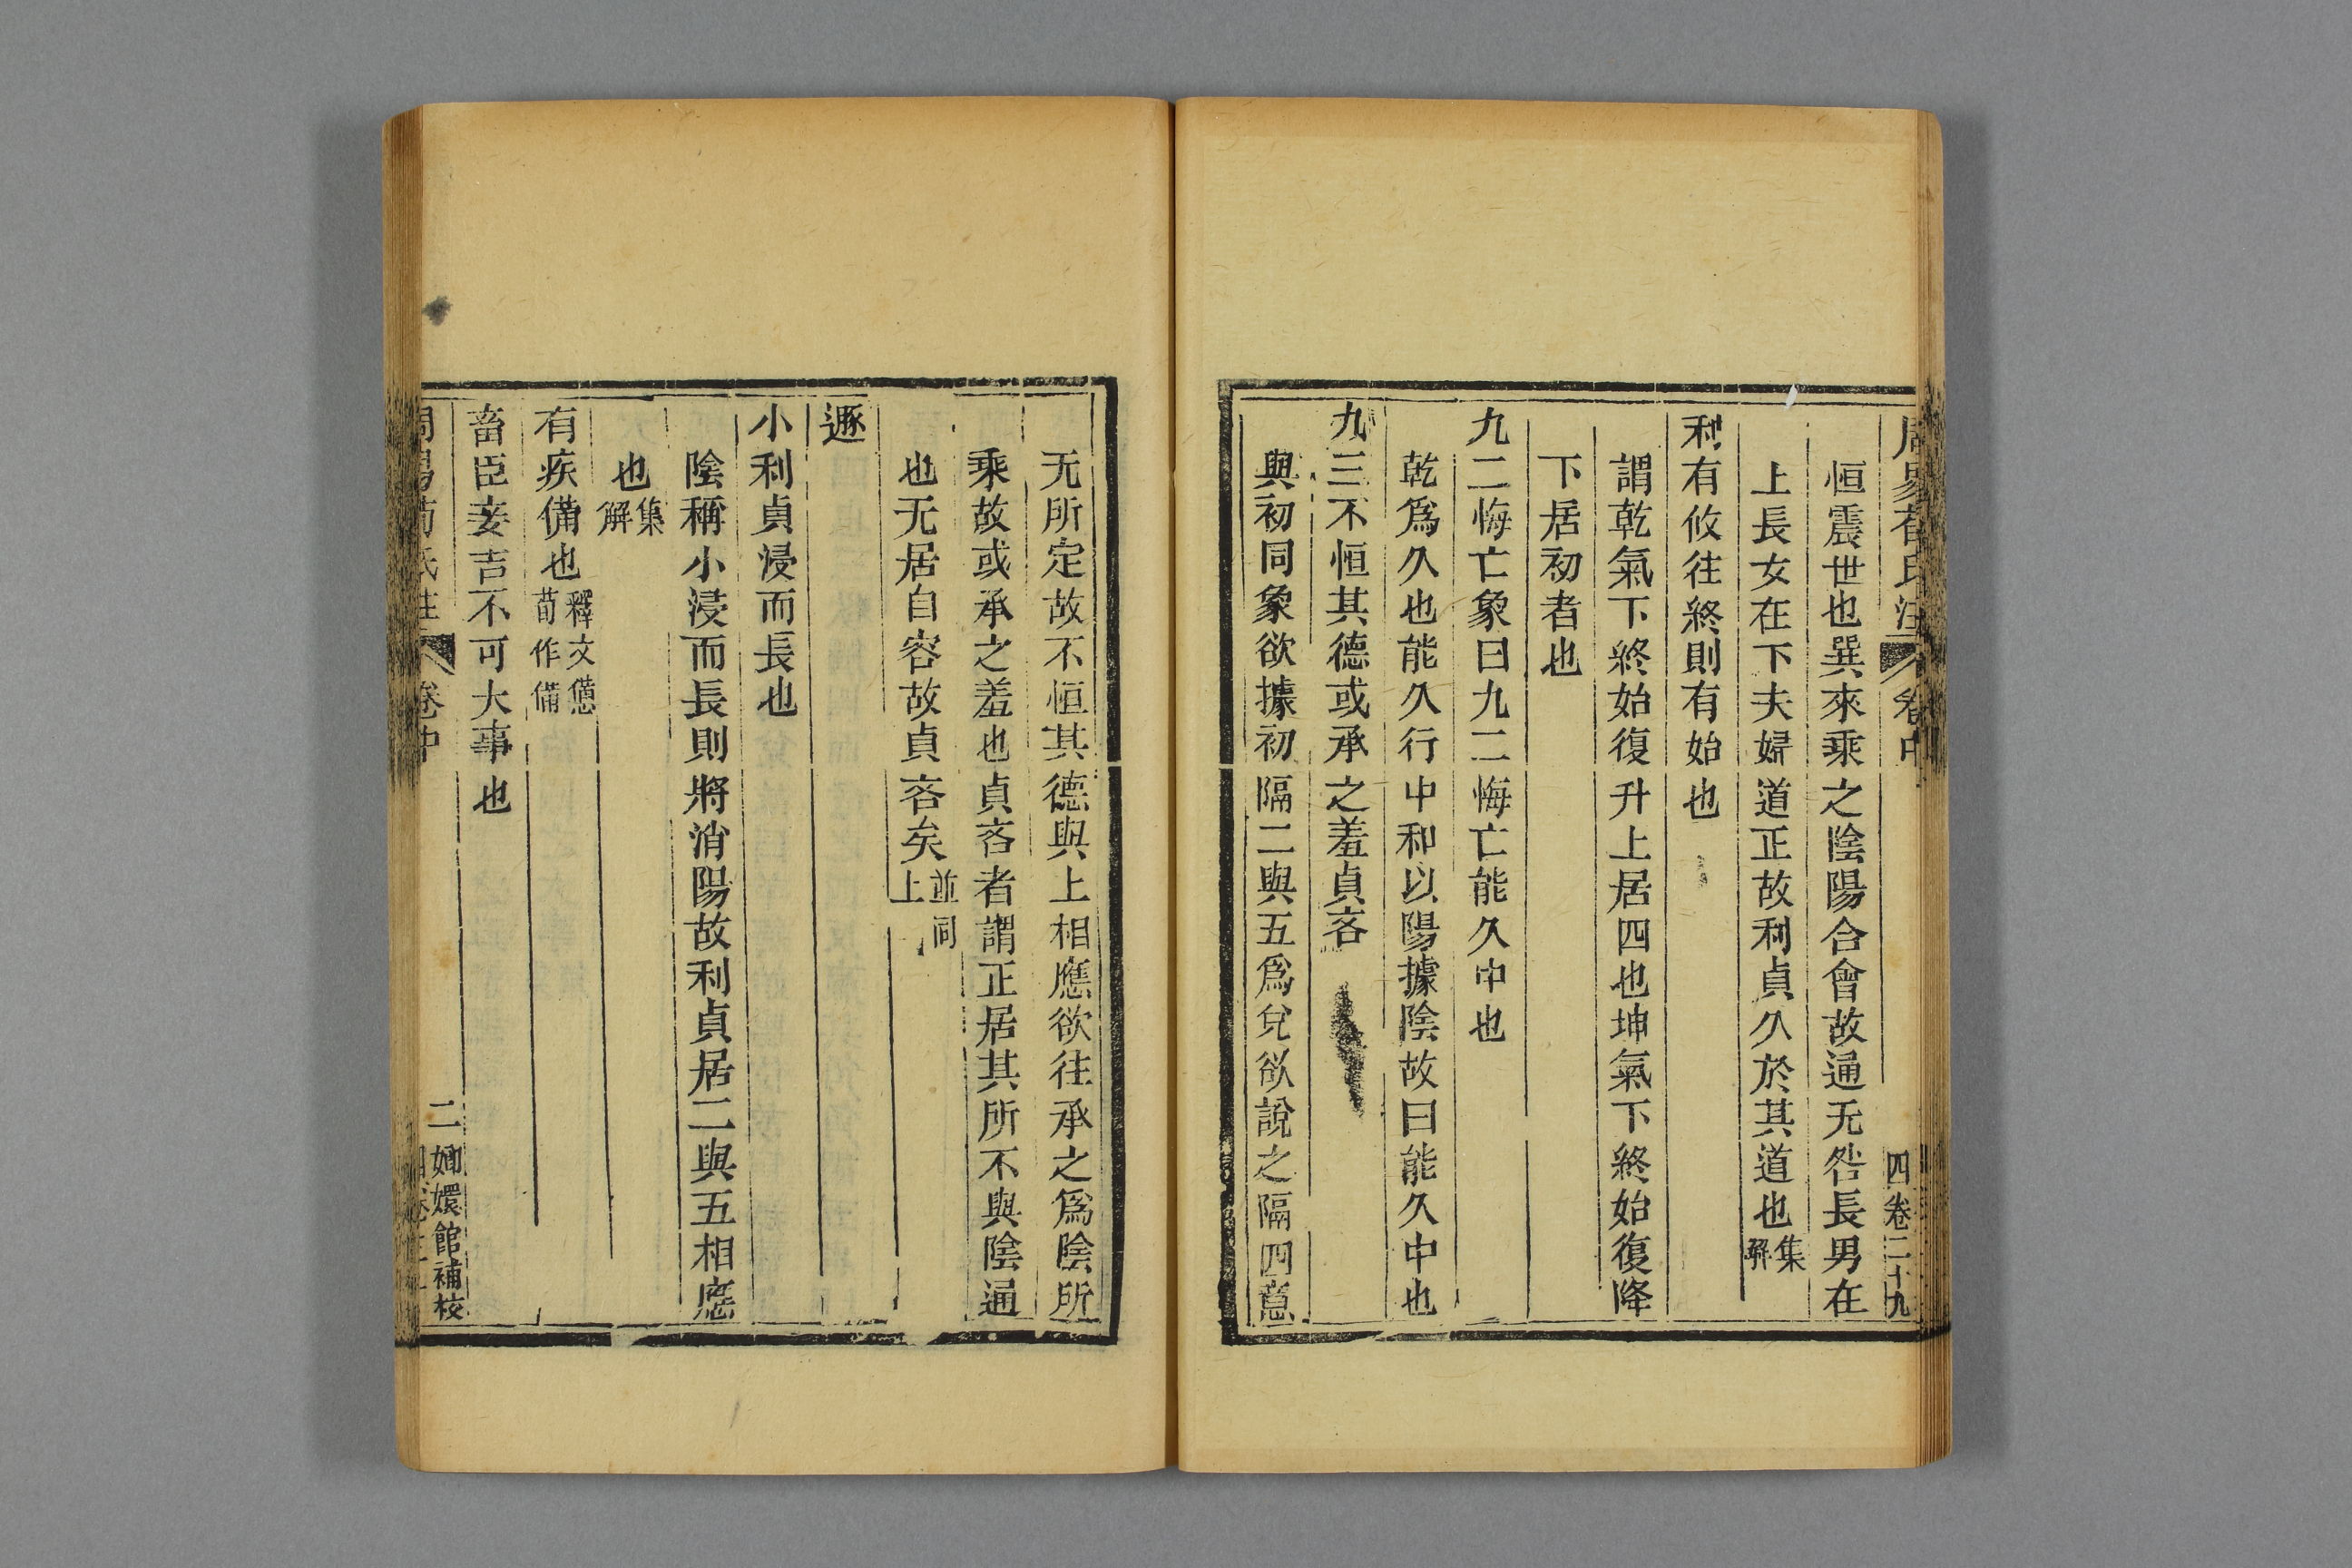 周易荀氏注 卷中
四卷二十九
恒震世也巽來乘之陰陽合會故通无咎長男在
上長女在下夫婦道正故利貞久於其道也集解
利有攸往終則有始也
謂乾氣下終始復升上居四也坤氣下終始復降
下居初者也
九二悔亡象曰九二悔亡能久中也
乾爲久也能久行中和以陽據陰故曰能久中也
九三不恒其德或承之羞貞吝
與初同象欲據初隔二與五爲兌欲說之隔四意
无所定故不恒其德與上相應欲往承之爲陰所
乘故或承之羞也貞吝者謂正居其所不與陰通
也无居自容故貞吝矣並同上
遯
小利貞浸而長也
陰稱小浸而長則將消陽故利貞居二與五相應
也集解
有疾備也釋文憊荀作備
畜臣妾吉不可大事也
周易荀氏注 卷中
二 嫏嬛館補校